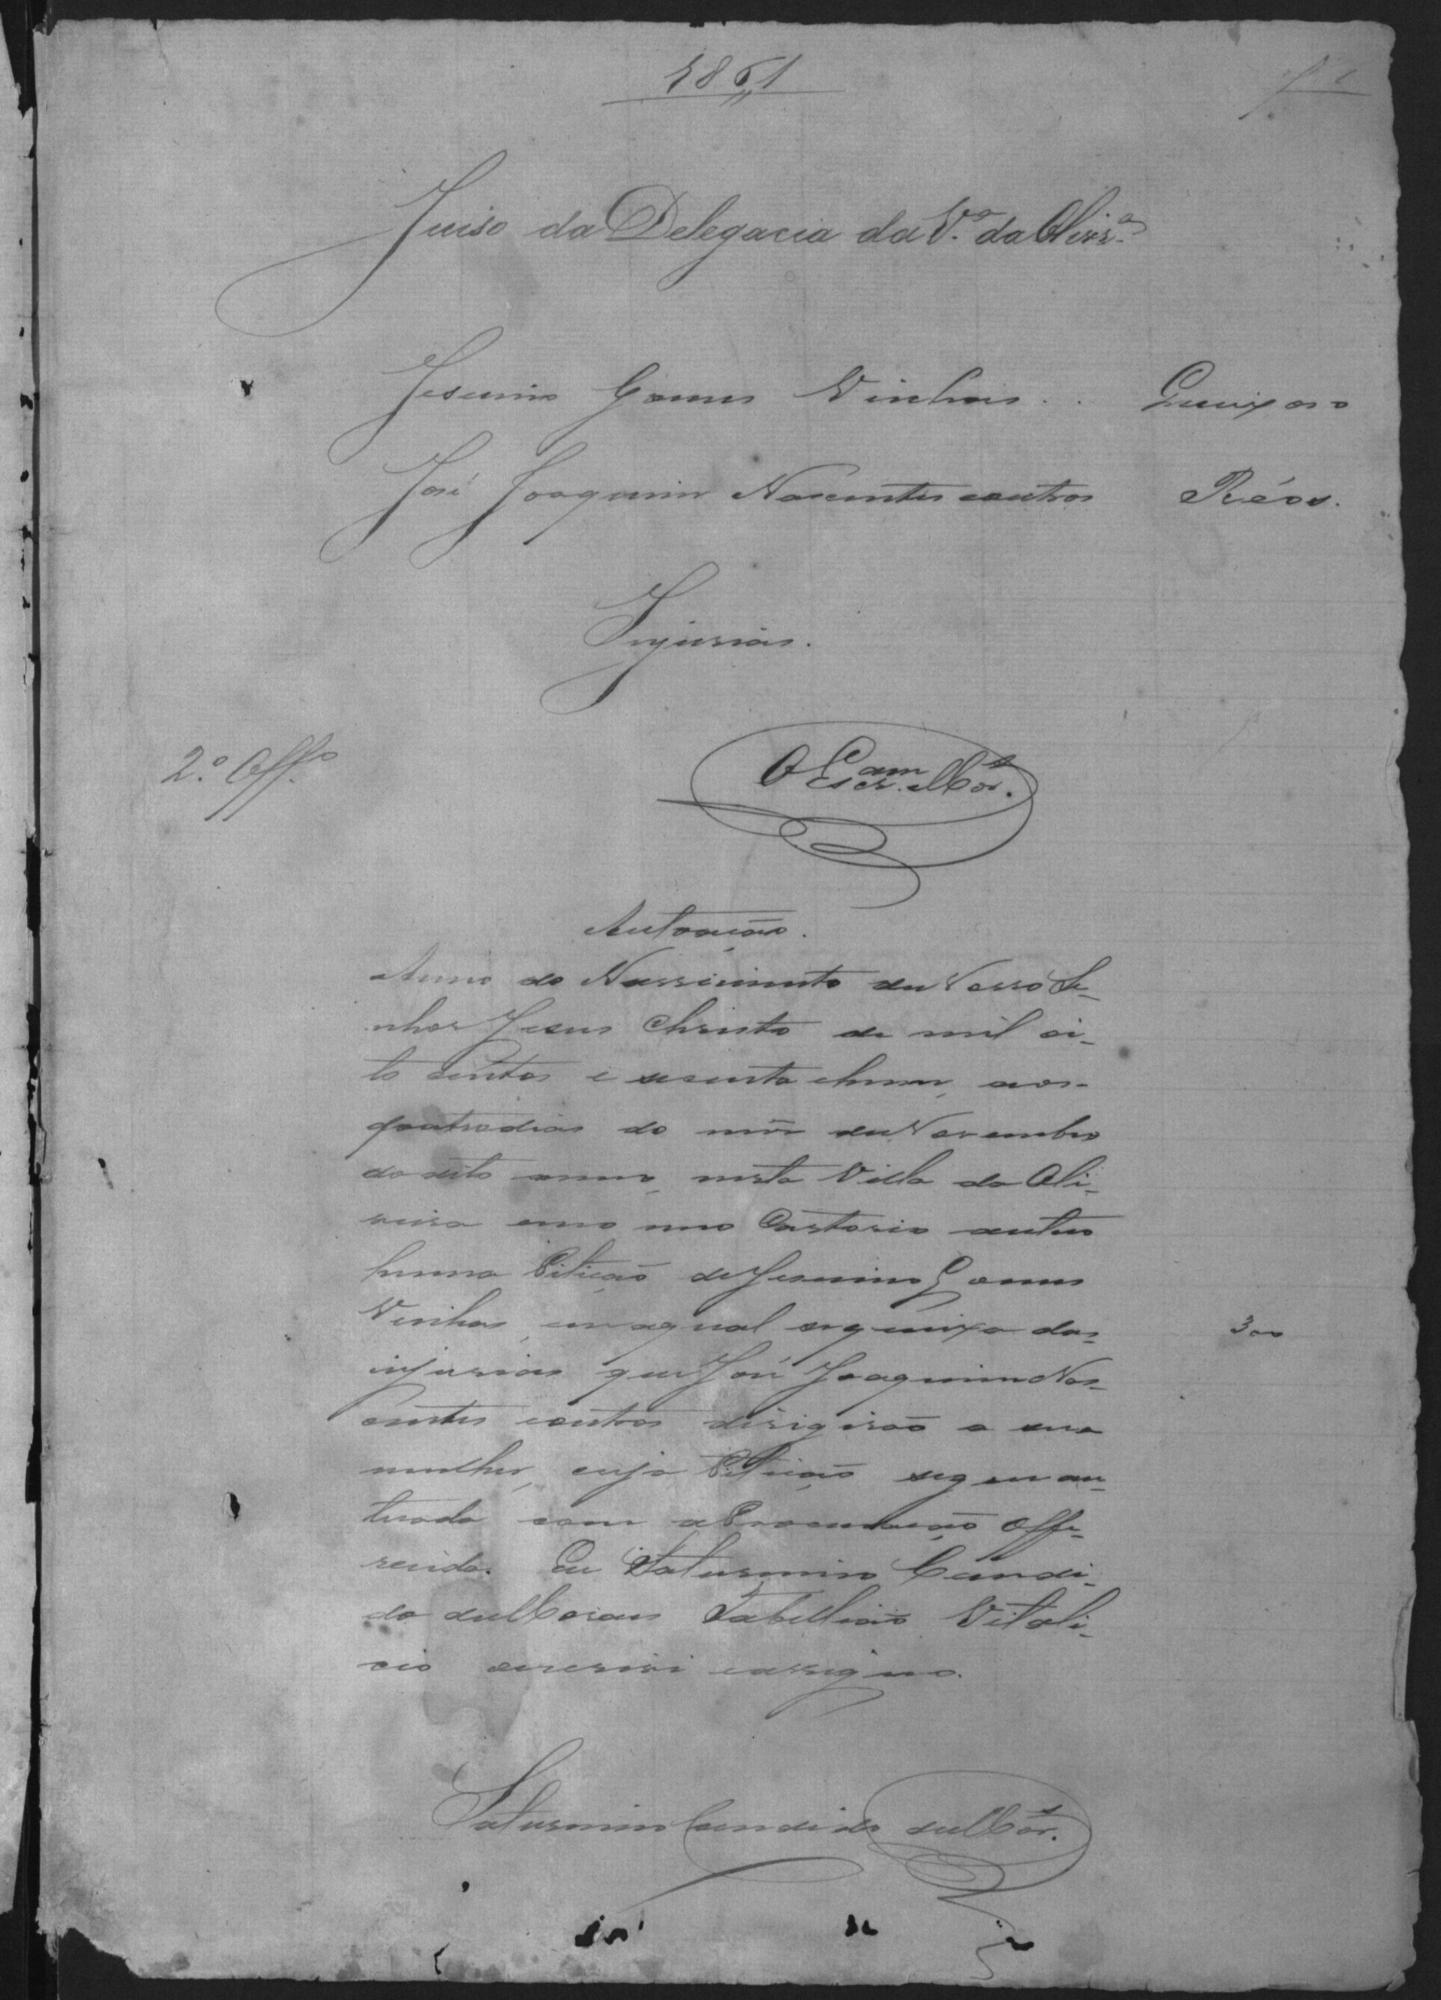 1861
f 1
Juiso da Delegacia da Vª. da Olivrª.
Jesuino Gomes Vinhas . . Queixoso
José Joaquim Nascentes e outros Réos.
Injurias.
2.º Offº
O Escram Moês.
Autoação.
Anno do Nascimento de Nosso Se-
nhor Jesus Christo de mil oi-
to centos e secenta e hum, aos
quatro dias do mês de Novembro
do dito anno, nesta Villa da Oli-
veira em o meo Cartorio autuo
huma Petição de Jesuino Gomes
Vinhas, em a qual se queixa das
300
injurias que José Joaquim Nas-
centes e outros dirigirão a sua
mulher, cuja Petição segue au-
tuada com a Procuração Offe-
recida. Eu Saturnino Candi-
do de Moraes Tabellião Vitali-
cio escrevi e assigno.
Saturnino Candido de Moês.